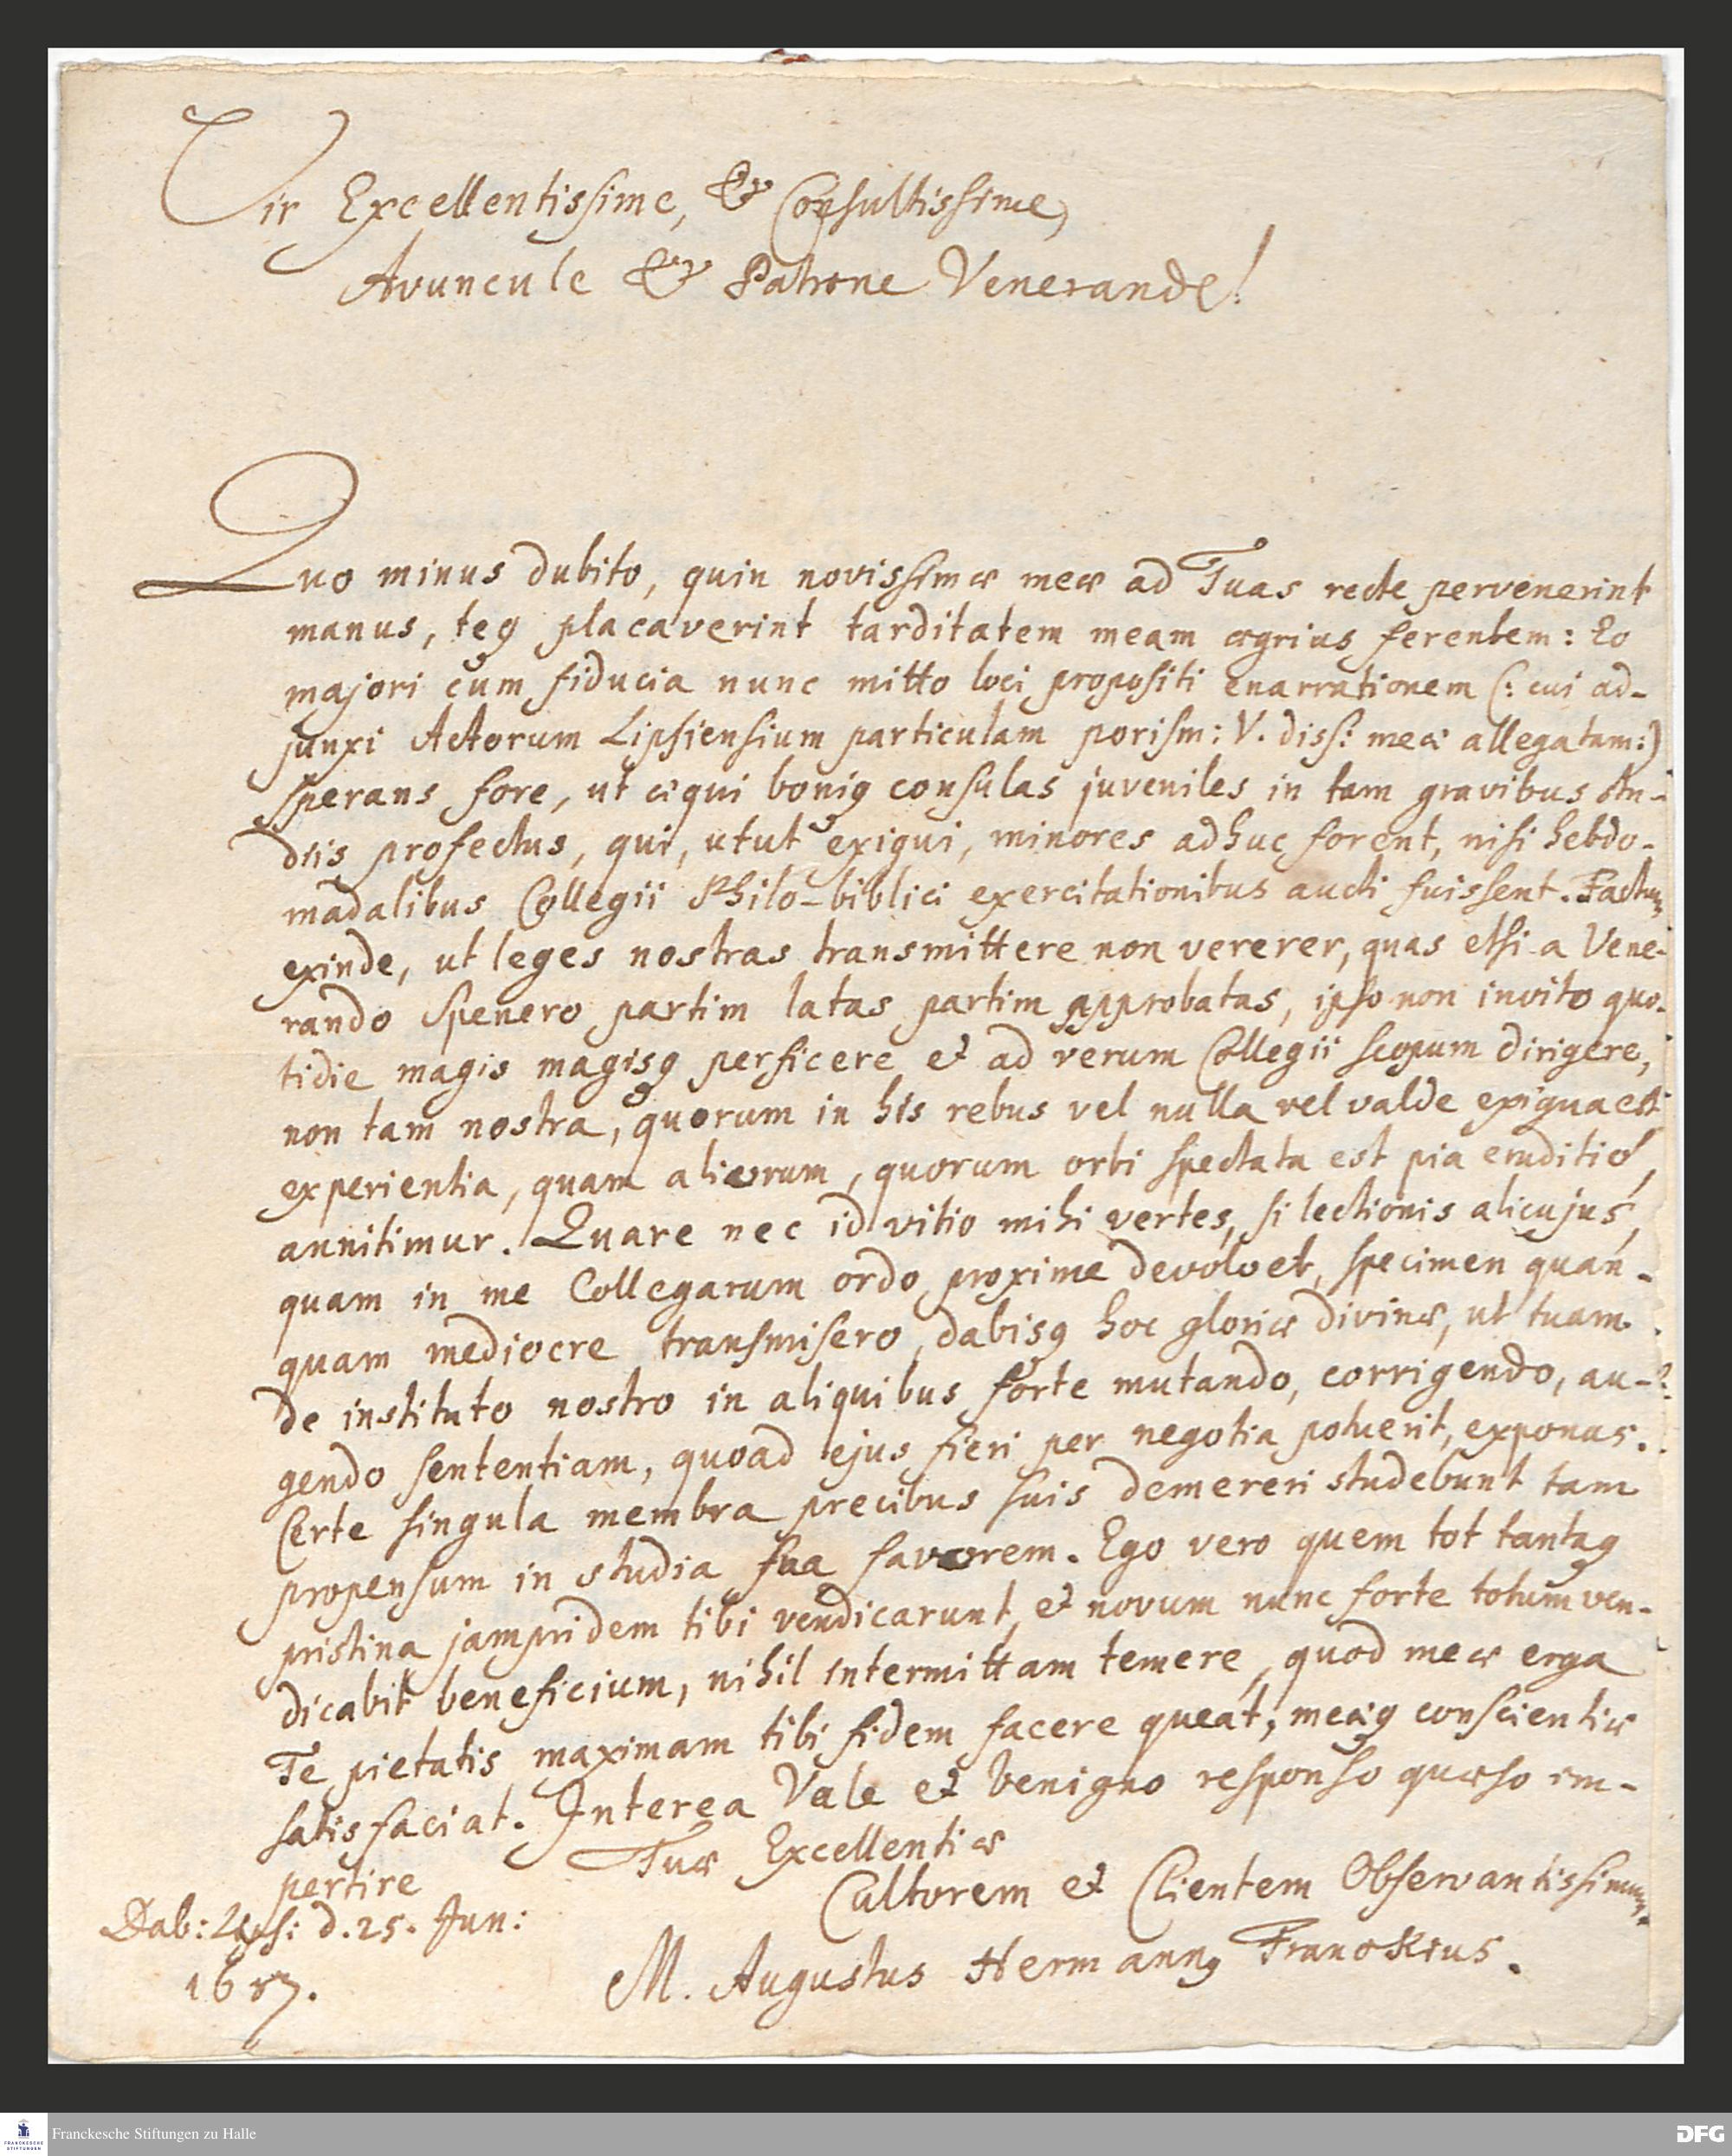 Vir Excellentissime, & Consultissime,
Avuncule & Patrone Venerande!
Quo minus dubito, quin novissimæ meæ ad Tuas recte pervenerint
manus, teq placaverint tarditatem meam ægrius ferentem: Eo
majori cum fiducia nunc mitto loci propositi enarrationem (: cui ad-
junxi Actorum Lipsiensium particulam porism: V. diss: meæ allegatam:)
sperans fore, ut æqui boniq consulas juveniles in tam gravibus stu-
diis profectus, qui, utut exigui, minores adhuc forent, nisi hebdo-
madalibus Collegii Philo-biblici exercitationibus aucti fuissent. Factum
exinde, ut leges nostras transmittere non vererer, quas etsi a Vene-
rando Spenero partim latas partim approbatas, ipso non invito quo-
tidie magis magisq perficere et ad verum Collegii scopum dirigere,
non tam nostra, quorum in his rebus vel nulla vel valde exigua est
experientia, quam aliorum, quorum orbi spectata est pia eruditio,
annitimur. Quare nec id vitio mihi vertes, si lectionis alicujus,
quam in me Collegarum ordo proxime devolvet, specimen quan-
quam mediocre transmisero, dabisq hoc gloriæ divinæ, ut tuam
de instituto nostro in aliquibus forte mutando, corrigendo, au-
gendo sententiam, quoad ejus fieri per negotia potuerit, exponas.
Certe singula membra precibus suis demereri studebunt tam
propensum in studia sua favorem. Ego vero quem tot tantaq
pristina jampridem tibi vendicarunt, et novum nunc forte totum ven-
dicabit beneficium, nihil intermittam temere, quod meæ erga
Te pietatis maximam tibi fidem facere queat, meæq conscientiæ
satisfaciat. Interea Vale et benigno responso quæso im-
pertire
Tuæ Excellentiæ
Cultorem et Clientem Observantissimum.
Dab: Lips: d. 25. Jun:
1687.
M. Augustus Hermannq Franckius.
Franckesche Stiftungen zu Halle
FRANCKESCHE
STIFTUNGEN
DFG